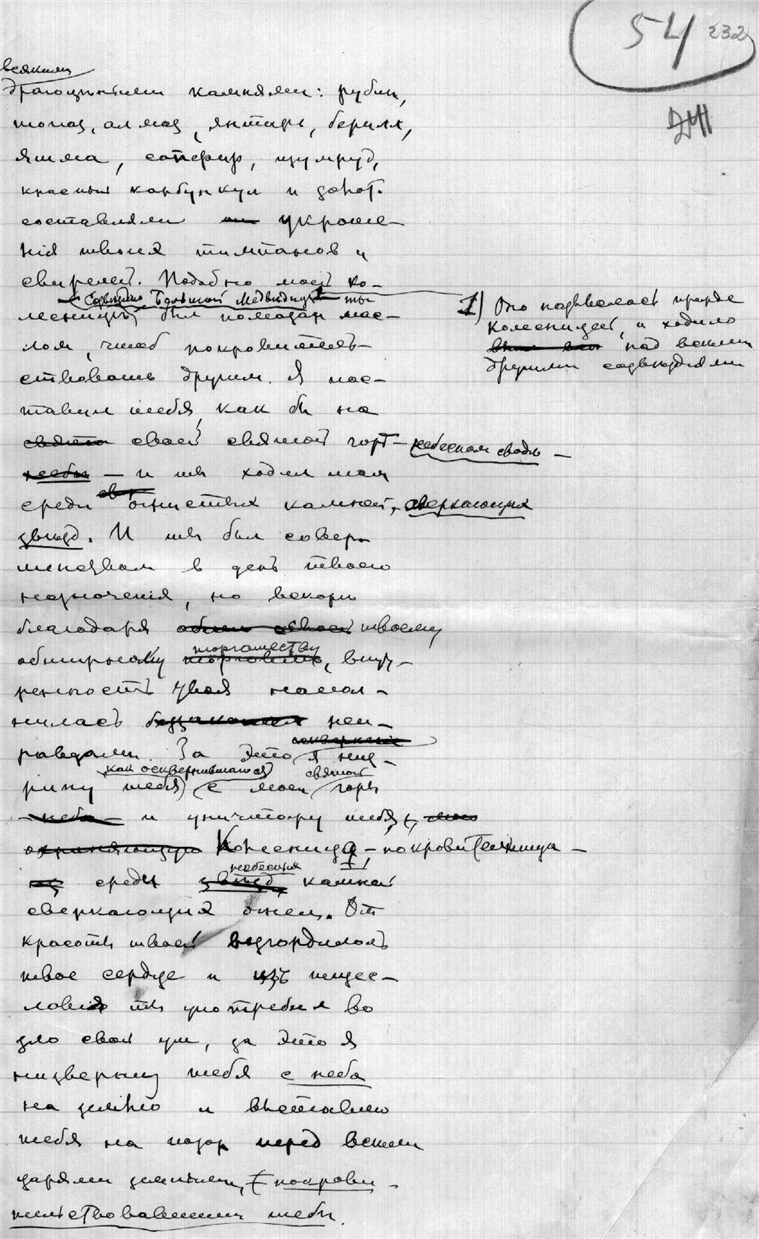 54 232
всякими
драгоцѣнными камнями: рубин,
топаз, алмаз, янтарь, берилл,
яшма, сапфир, изумруд,
красный карбункул и
составляли украше-
нія твоих тимпанов и
свирелей. Подобно моей ко-
Созвѣздію Большой Медвѣдицы ты
лесницѣ был помазан мас-
лом, чтоб покровитель-
ствовать другим. Я пос-
тавил тебя, как бы на
свято своей святой горѣ – небесном сводѣ –
– и ты ходил там
среди огнистых камней, сверкающих
звѣзд. И ты был совер-
шенством в день твоего
назначенія, но вскорѣ
благодаря твоему
торгашеству
обширному, внут-
ренность твоя напол-
нилась неп-
равдами. За это я низ-
как осквернившагося святой
рину тебя с моей горы
неба и уничтожу тебя,
охраняющую Колесница – покровительница –
небесных
среди звѣзд камней
сверкающих огнем. От
красоты твоей возгордилось
твое сердце и из тщес-
лавія ты употребил во
зло свой ум, за это я
низвергну тебя с неба
на землю и выставлю
тебя на позор перед всѣми
царями земными, покрови-
тельствовавшими тебѣ.
1) Оно подвигает прежде
колесницей, и ходило
над всѣми
другими созвѣздіями